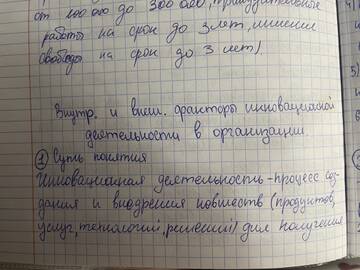 от 200 000 до 300 000, принудительные
работы на срок до 3 лет, лишение
свободы на срок до 3 лет).
Внутр. и внеш. факторы инновационной
деятельности в организации.
① Суть понятия
Инновационная деятельность - процесс соз-
дания и внедрения новшеств (продуктов,
услуг, технологий, решений) для получения